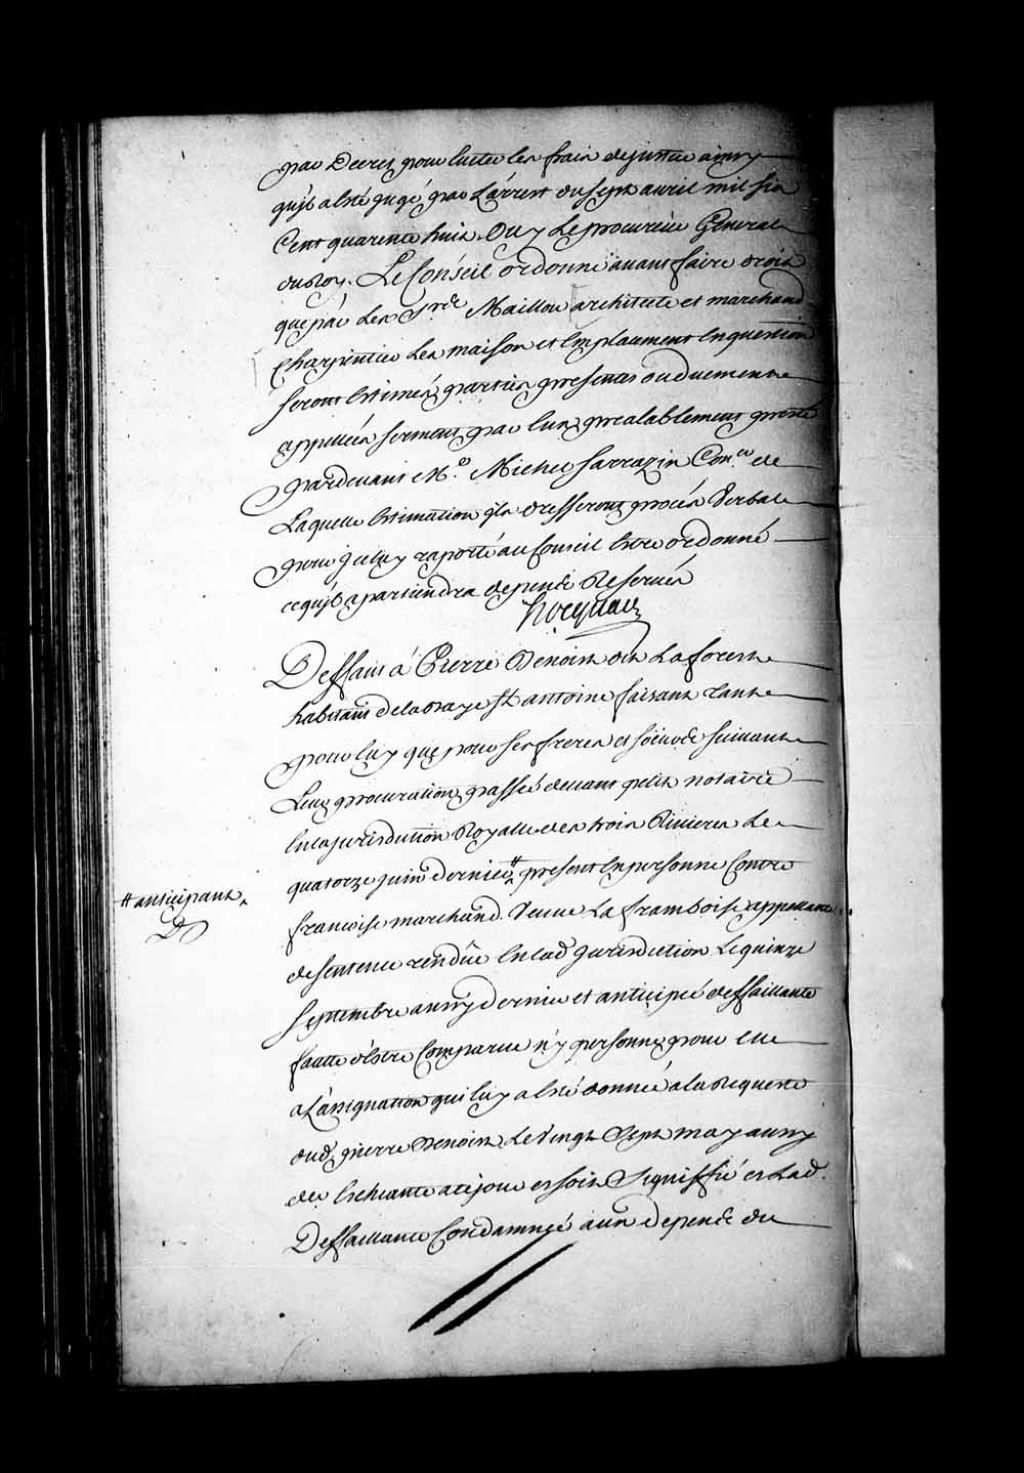 par Decret pour luiter les frais de justice ainsy
quil a esté jugé par L'arrest du sept avril mil six
Cent quarente huit. Ouy Le procureur General
du Roy. Le Conseil ordonne avant faire droit
que par Les Srs de Maillou architecte et marchand
Charpentier Les maison et Emplacement En question
seront Estimés parties presentes ou duement
appellées serment par Eux prealablement presté
pardevant Me Michel Sarrazin Coner de
Laquelle Estimation ils dresseront procès Verbal
pour iceluy raporté au Conseil Estre ordonné
ce quil apartiendra depends Reservés
hocquart
Deffaut à Pierre Benoist dit Laforest
habitant de la baye St antoine faisant tant
pour luy que pour ses freres et soeurs suivant
Leur procuration passée devant petit notaire
En la jurisdiction Royalle des trois Rivieres Le
quatorze juin dernier # present En personne Contre
francoise marchand Veuve La framboise appellante
de sentence rendüe En lad jurisdiction Le quinze
septembre aussy dernier et anticipée deffaillante
faute d'estre Comparue ny personne pour elle
a L'assignation qui luy a Esté donnée a la Requeste
dud. pierre Benoist Le Vingt Sept may aussy
der Echeante a ce jour et soit Signiffié et Lad.
Deffaillante Condamnée aux depends du
# anticipant